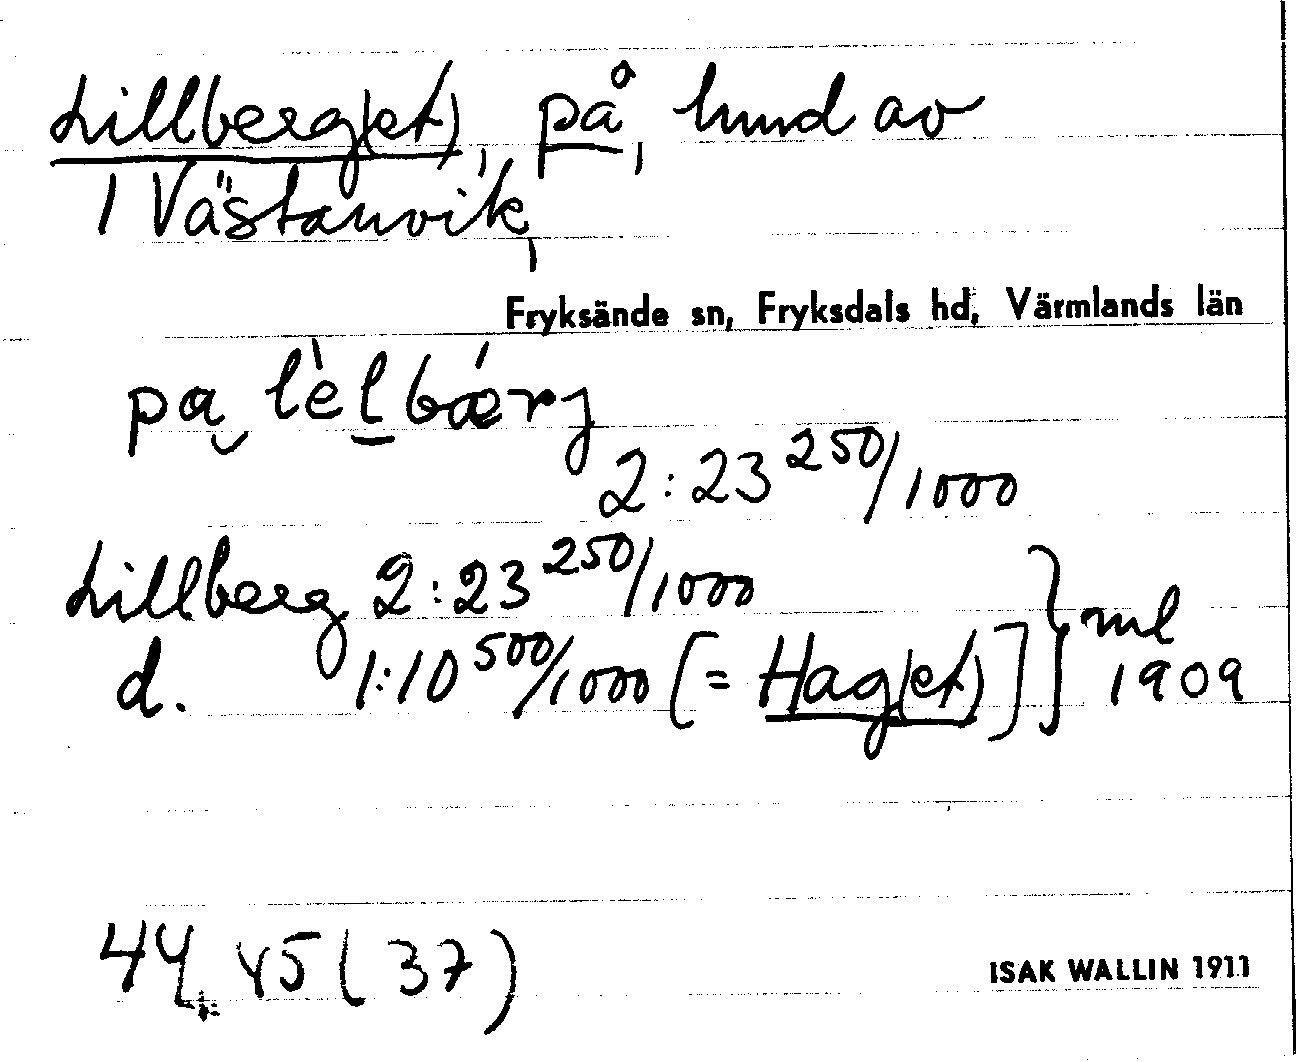 Lillberg(et), på, hmd av
1 Västanvik,
Fryksände sn, Fryksdals hd, Värmlands län
pa lèlbærj
2:23 250/1000
Lillberg 2:23 250/1000
d. 1:10 500/1000 [= Hag(et)] } ml 1909
44, 45 (37)
ISAK WALLIN 1911